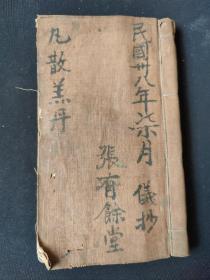 民國卅八年柒月 儀抄
張有餘堂
凡散羔丹